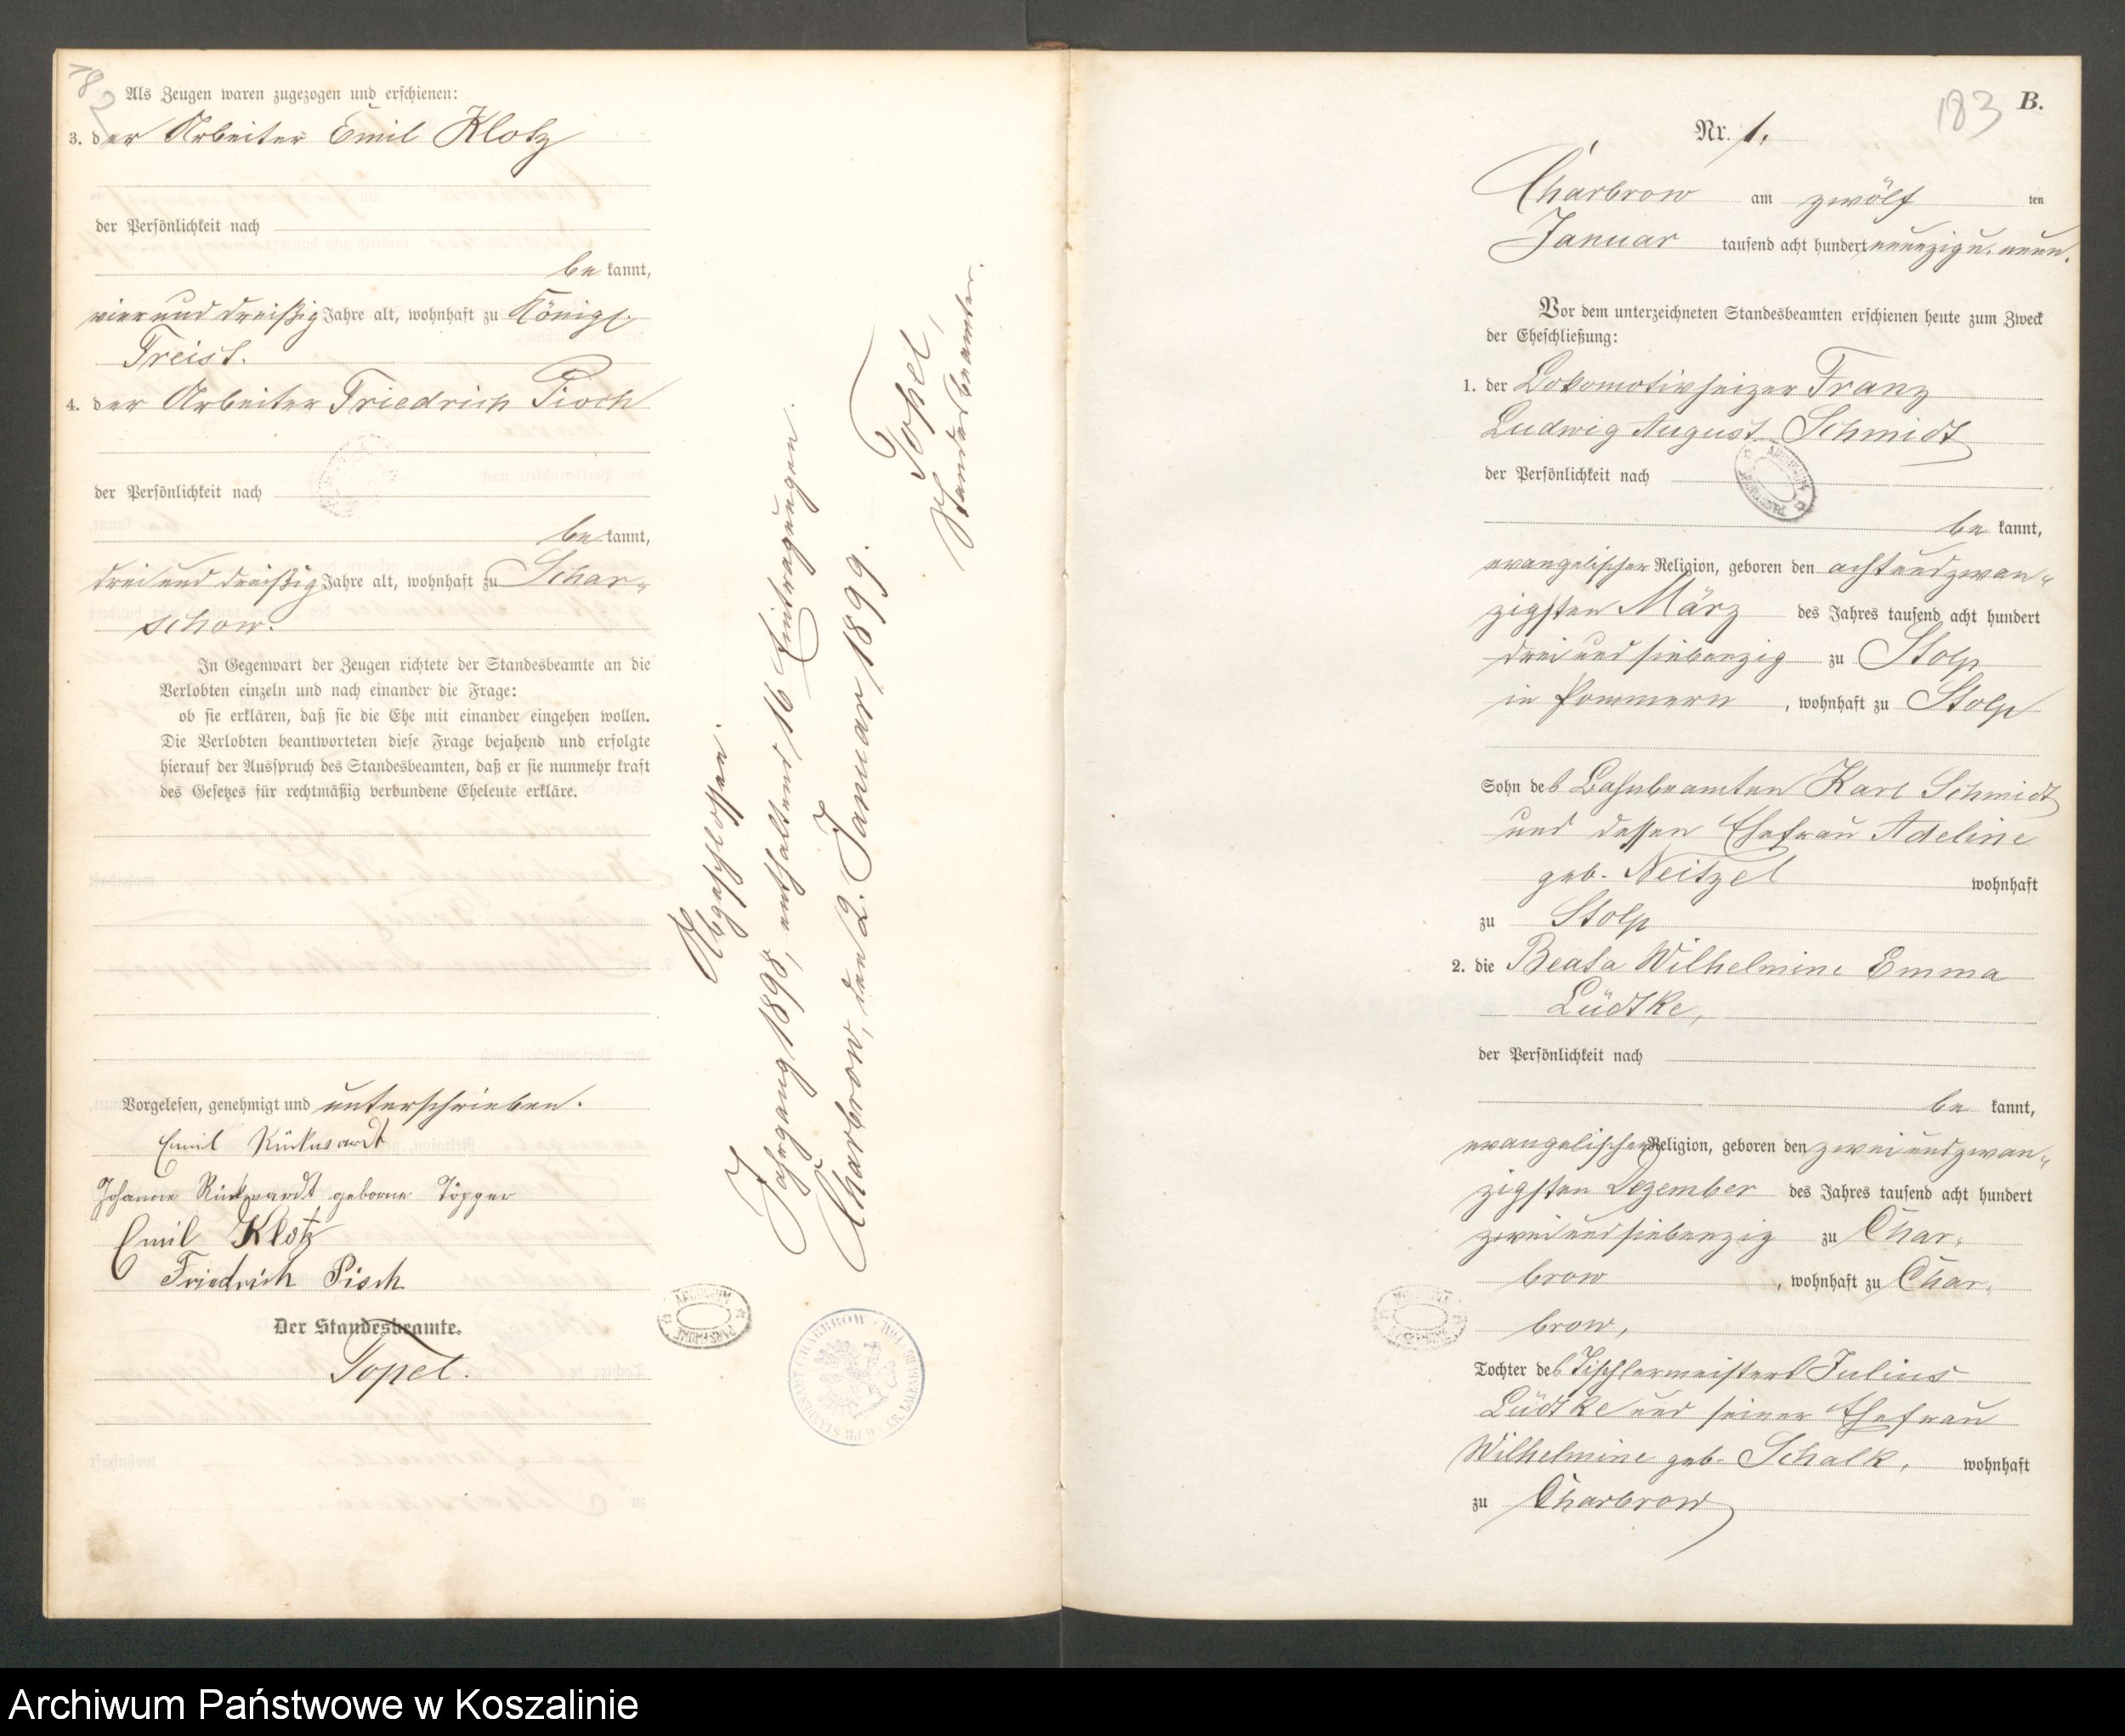 182
Als Zeugen waren zugezogen und erschienen:
3. der Arbeiter Emil Klotz
der Persönlichkeit nach
be kannt,
vier und dreißig Jahre alt, wohnhaft zu Königl.
Freist.
4. der Arbeiter Friedrich Pioch
der Persönlichkeit nach
be kannt,
drei und dreißig Jahre alt, wohnhaft zu Schar-
schow.
In Gegenwart der Zeugen richtete der Standesbeamte an die
Verlobten einzeln und nach einander die Frage:
ob sie erklären, daß sie die Ehe mit einander eingehen wollen.
Die Verlobten beantworteten diese Frage bejahend und erfolgte
hierauf der Ausspruch des Standesbeamten, daß er sie nunmehr kraft
des Gesetzes für rechtmäßig verbundene Eheleute erkläre.
Vorgelesen, genehmigt und unterschrieben.
Emil Rückwardt
Johanne Rückwardt geborne Töpper
Emil Klotz
Friedrich Pioch
Der Standesbeamte.
Topel.
Abgeschlossen.
Jahrgang 1898, enthaltend 16 Eintragungen.
Charbrow, den 2. Januar 1899.
Topel,
Standesbeamter.
183
B.
Nr. 1.
Charbrow am zwölf ten
Januar tausend acht hundert neunzig u. neun.
Vor dem unterzeichneten Standesbeamten erschienen heute zum Zweck
der Eheschließung:
1. der Lokomotivheizer Franz
Ludwig August Schmidt
der Persönlichkeit nach
be kannt,
evangelischer Religion, geboren den achtundzwan-
zigsten März des Jahres tausend acht hundert
drei und siebenzig zu Stolp
in Pommern, wohnhaft zu Stolp
Sohn des Bahnbeamten Karl Schmidt
und dessen Ehefrau Adeline
geb. Neitzel wohnhaft
zu Stolp
2. die Beata Wilhelmine Emma
Lüdtke,
der Persönlichkeit nach
be kannt,
evangelischer Religion, geboren den zwei und zwan-
zigsten Dezember des Jahres tausend acht hundert
zwei und siebenzig zu Char-
brow, wohnhaft zu Char-
brow,
Tochter des Tischlermeisters Julius
Lüdtke und seiner Ehefrau
Wilhelmine geb. Schalk, wohnhaft
zu Charbrow
Archiwum Państwowe w Koszalinie